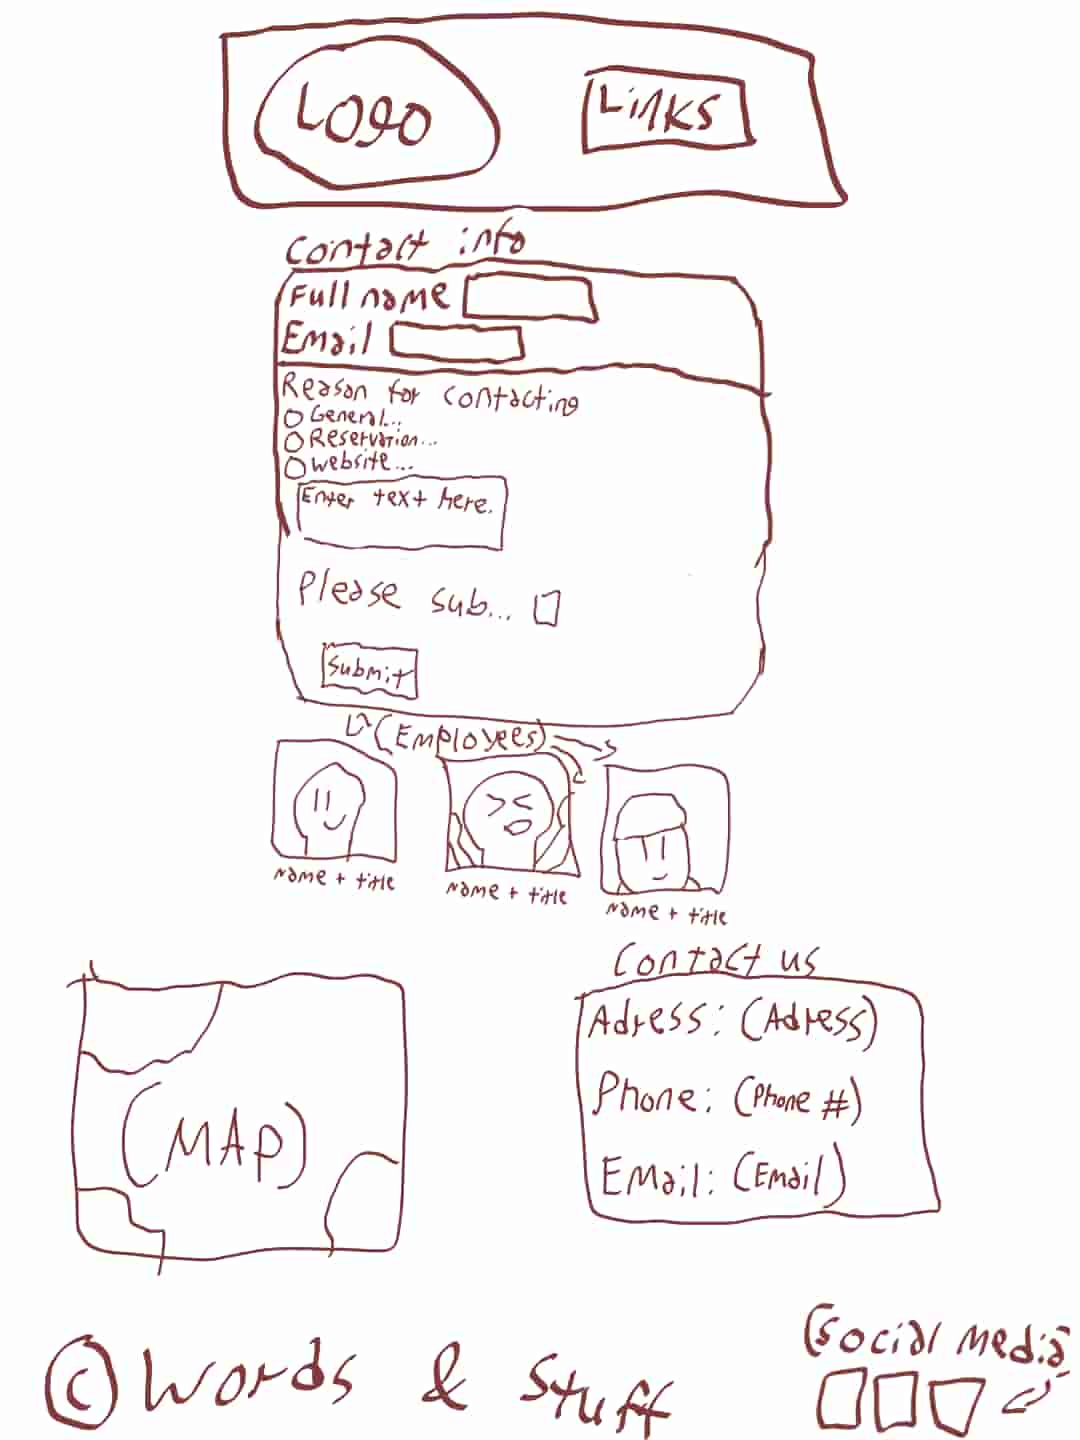 Logo
Links
Contact info
Full name
Email
Reason for contacting
General...
Reservation...
website...
Enter text here.
Please sub...
Submit
(Employees)
name + title
name + title
name + title
Contact us
Adress: (Adress)
Phone: (Phone #)
Email: (Email)
(MAP)
(social media)
© Words & Stuff